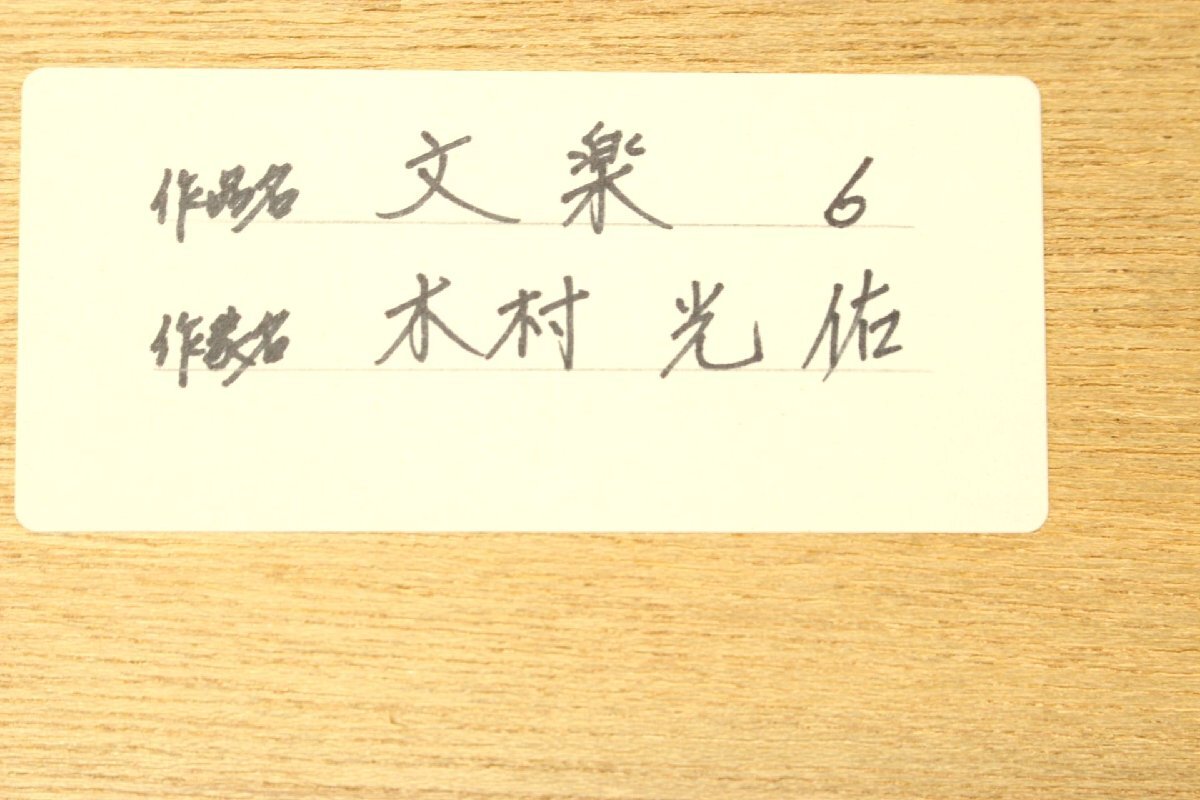 作品名 文楽 6
作家名 木村光佑